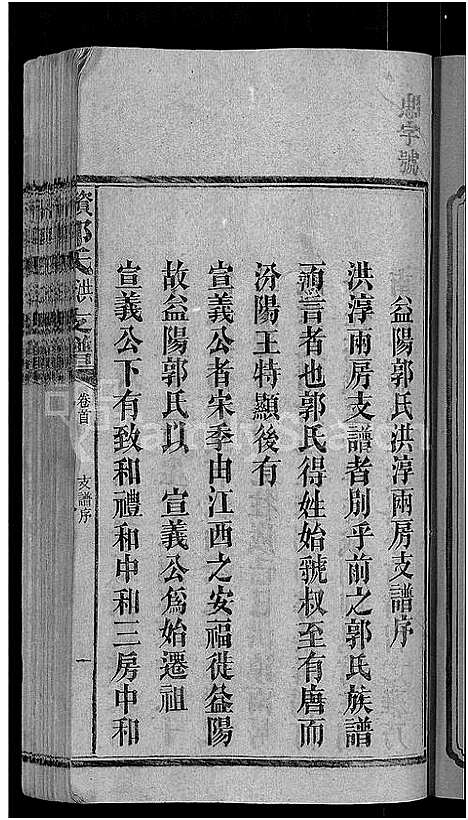 忠字號
益陽郭氏洪淳兩房支譜序
洪淳兩房支譜者別乎前之郭氏族譜
而言者也郭氏得姓始虢叔至有唐而
汾陽王特顯後有
宣義公者宋季由江西之安福徙益陽
故益陽郭氏以 宣義公爲始遷祖
宣義公下有致和禮和中和三房中和
資郭氏洪支譜 卷首 支譜序 一